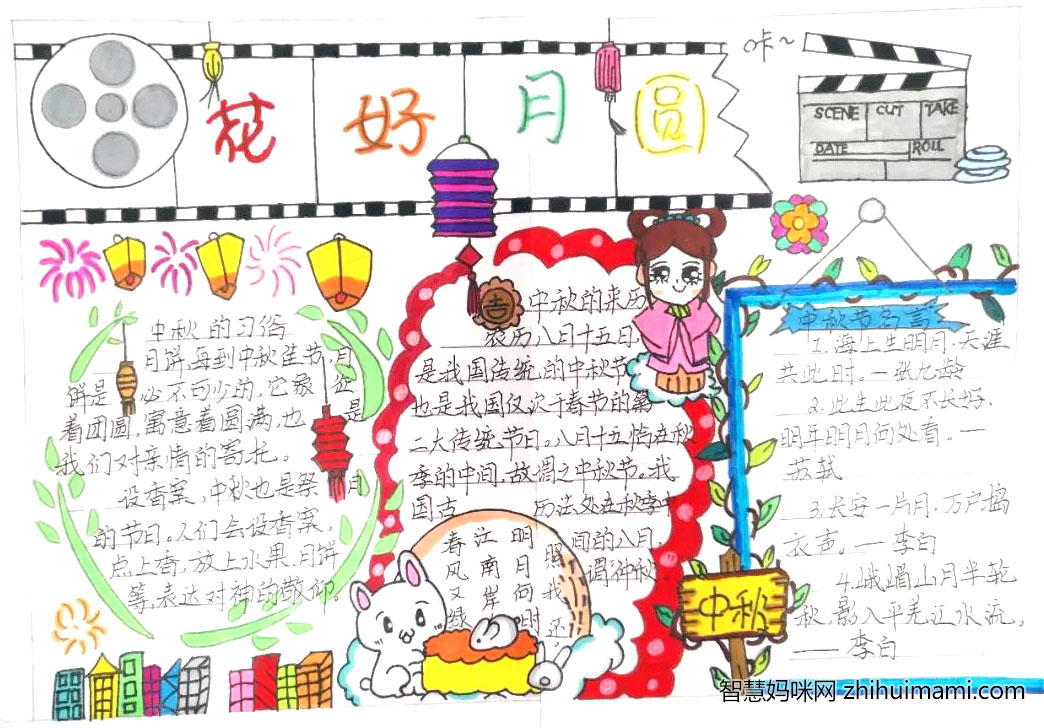 花好月圆
咔~
SCENE CUT TAKE
DATE ROLL
中秋的习俗
月饼,每到中秋佳节,月
饼是必不可少的,它象征
着团圆,寓意着圆满,也是
我们对亲情的寄托。
设香案,中秋也是祭月
的节日。人们会设香案,
点上香,放上水果、月饼
等,表达对神的敬仰。
吉
中秋的来历
农历八月十五日,
是我国传统的中秋节,
也是我国仅次于春节的第
二大传统节日。八月十五恰在秋
季的中间,故谓之中秋节。我
国古 历法处在秋季中
间的八月,
谓仲秋
春风又绿
江南岸
明月何时
照我还。
中秋节名言
1.海上生明月,天涯
共此时。—张九龄
2.此生此夜不长好,
明年明月何处看。—
苏轼
3.长安一片月,万户捣
衣声。—李白
4.峨嵋山月半轮
秋,影入平羌江水流。
——李白
中秋
智慧妈咪网 zhihuimami.com